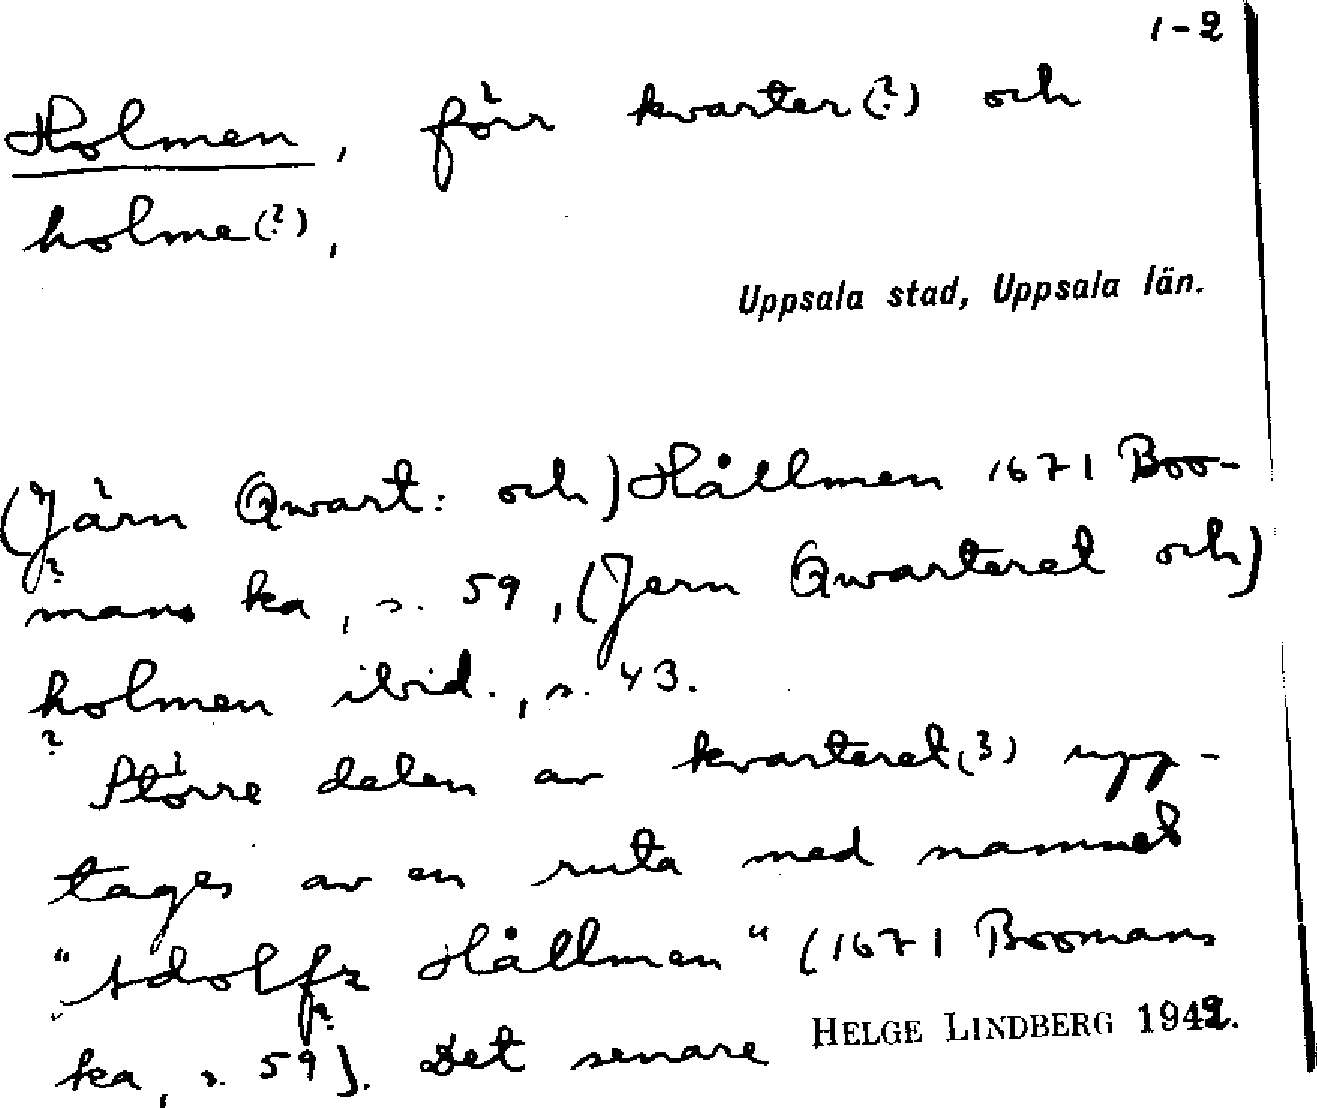 1-2
Holmen, förr kvarter(?) och
holme(?),
Uppsala stad, Uppsala län.
(Järn Qwart: och) Hållmen 1671 Boo-
mans ka, s. 59, (Jern Qwarteret och)
holmen ibid., s. 43.
Större delen av kvarteret(?) upp-
tages av en ruta med namnet
"Adolfz Hållmen" (1671 Boomans
ka, s. 59). Det senare
HELGE LINDBERG 1942.